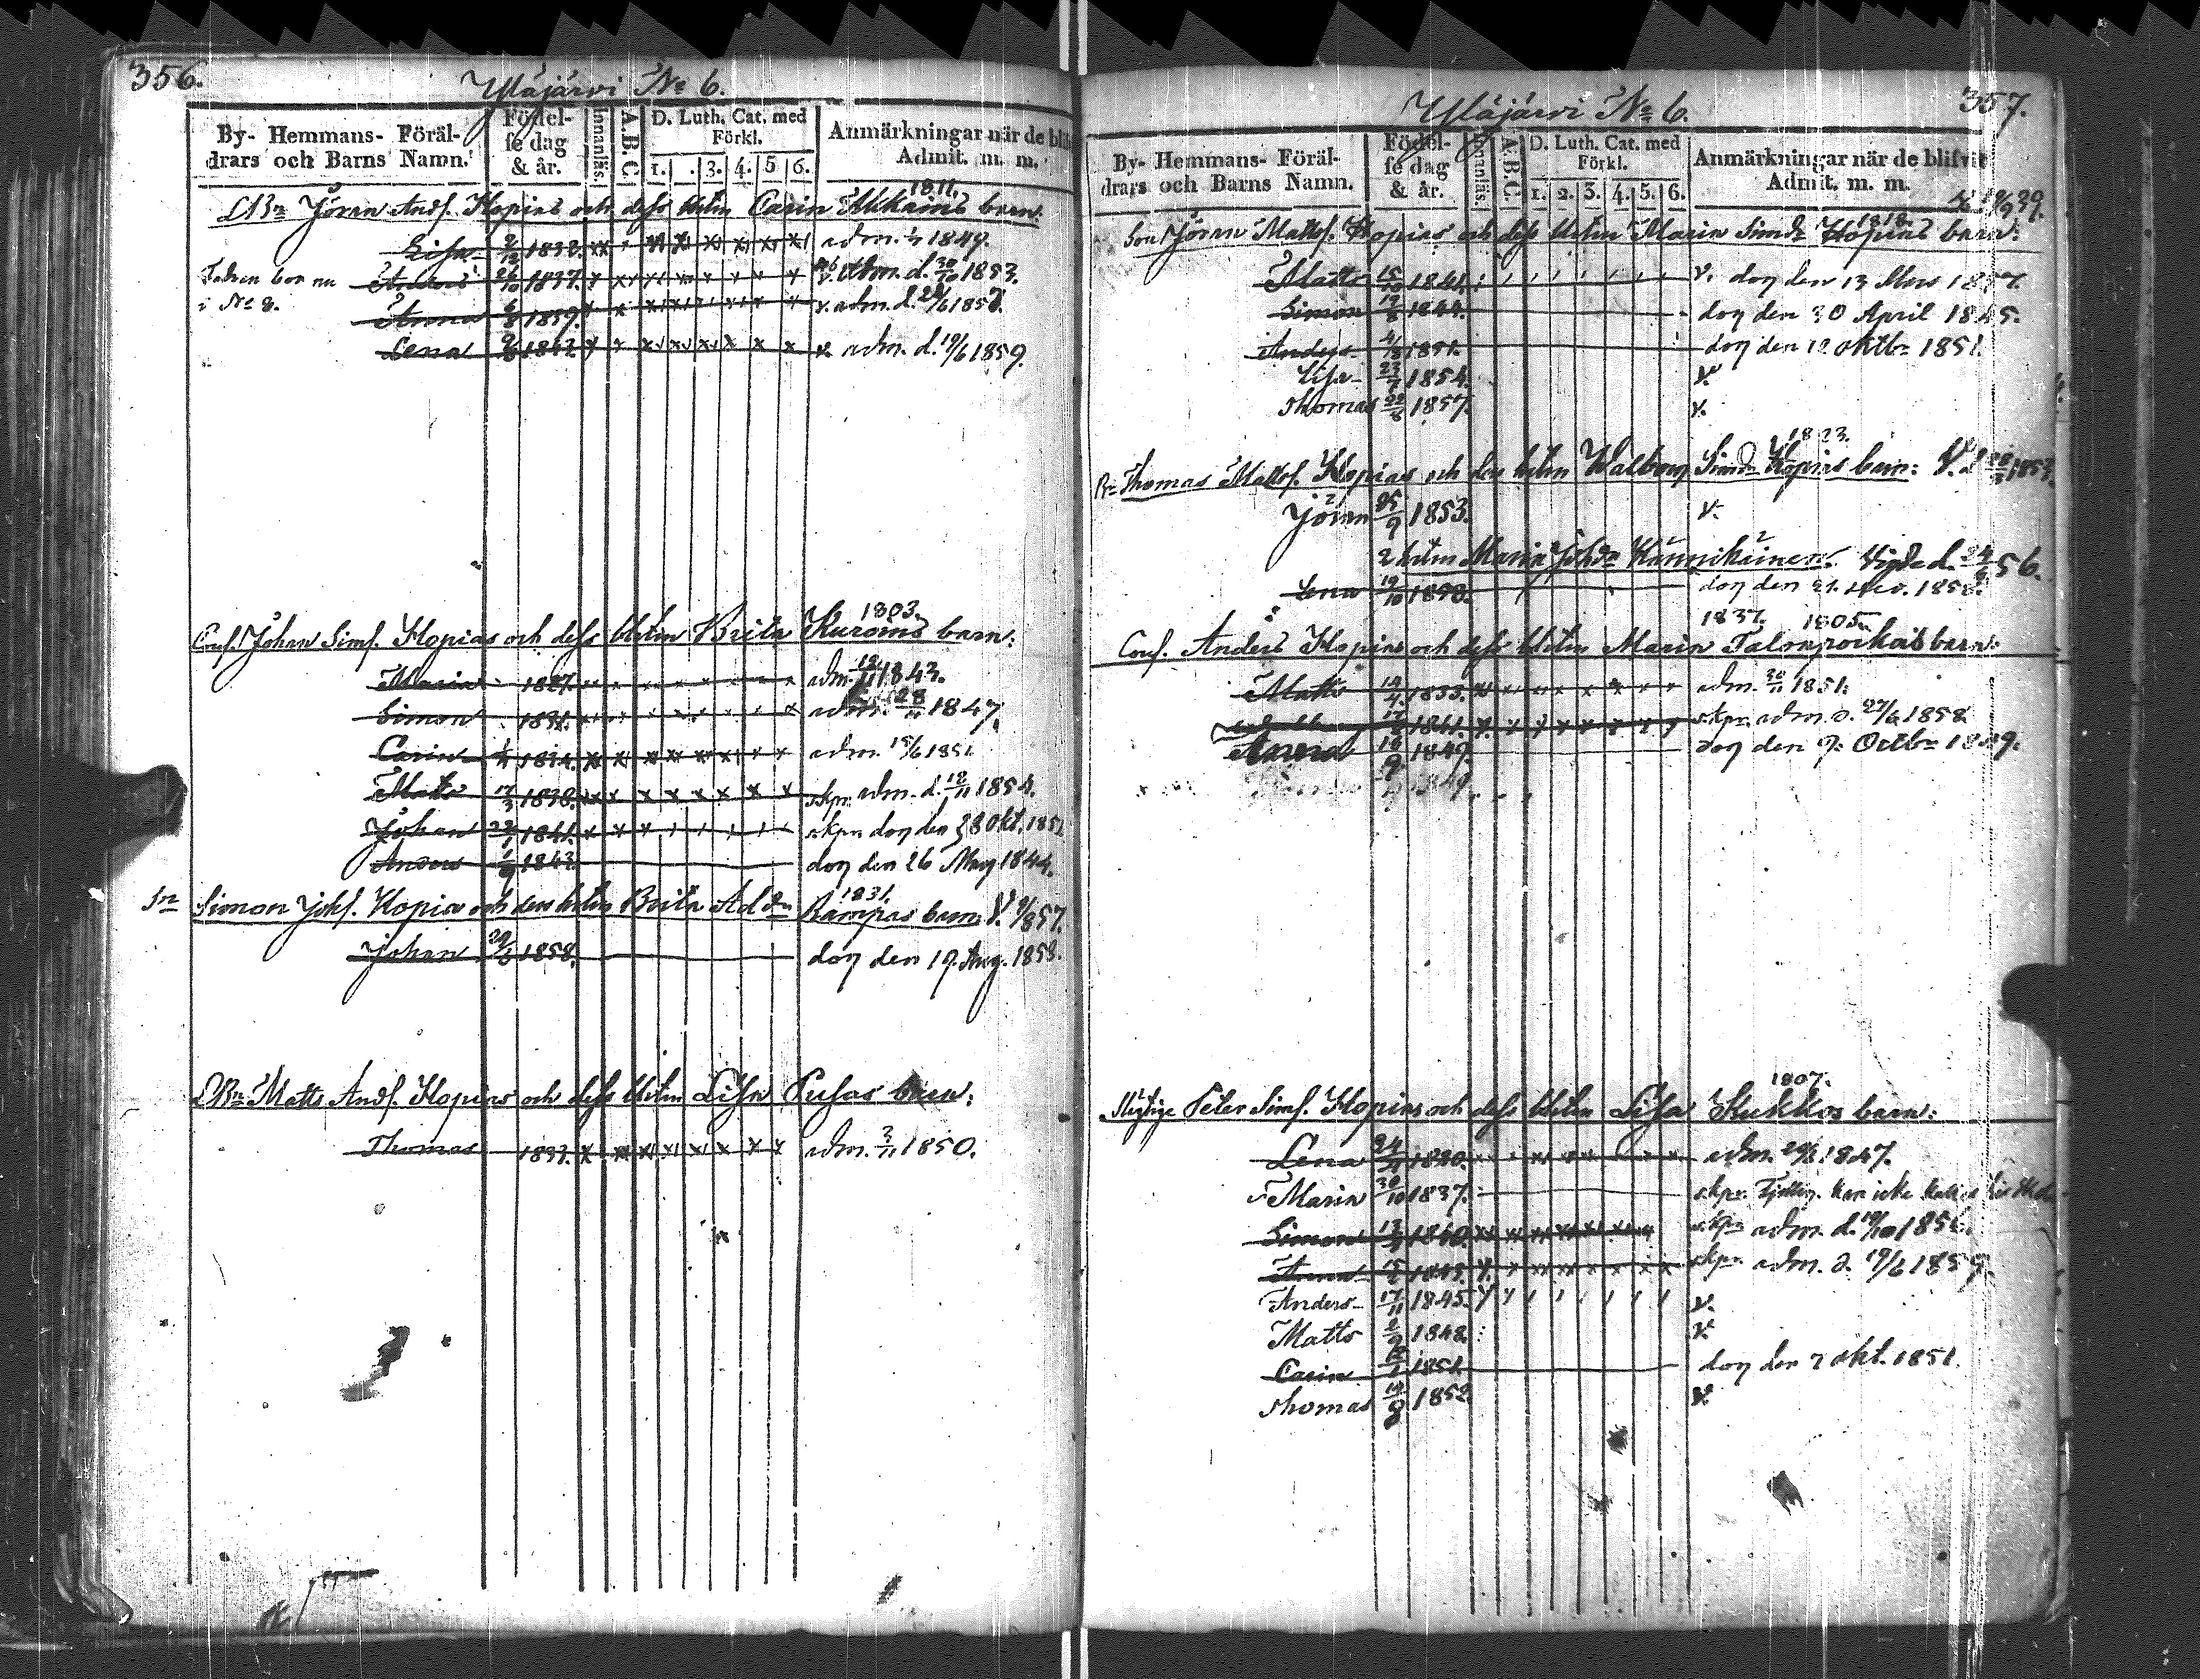 356.
Yläjärvi No 6.
By- Hemmans- Föräldrars och Barns Namn.
Födelse dag & år.
Innanläs.
A.B.C.
D. Luth. Cat. med Förkl.
1. . 3. 4. 5 6.
Anmärkningar när de bli
Admit. m. m.
1811.
Jöran Andſ. Hopias och deſs hustru Carin Akkains barn:
Lisa 1832. adm. 1849.
Fadren bor nu
i No 8.
Anders 26/10 1837. adm. d. 30/10 1853.
Anna 6/8 1839. v. adm. d. 1857.
Lena 1842. v. adm. d. 19/6 1859.
1803.
Johan Simſ. Hopias och deſs hustru Brita Kuroins barn:
Maria 1827. adm. 1843.
Simon 1831. adm. 28/11 1847.
Carin 1834. adm. 15/6 1851
Matts 17/3 1838. skpr adm. d. 12/11 1854.
Johan 1841. skpr dog den 28 Okt. 1851
Anders 1843. dog den 26 May 1844.
1831.
Sn Simon Johſ. Hopias och dess hustru Brita Ad.dr Rampas barn. V. 1857.
Johan 1858. dog den 19. Aug. 1858.
Matts Andſ. Hopias och deſs hustru Lisa Pusas barn:
Thomas 1833. adm. 3/11 1850.
357.
Yläjärvi No 6.
By- Hemmans- Föräldrars och Barns Namn.
Födelse dag & år.
Innanläs.
A.B.C.
D. Luth. Cat. med Förkl.
1. 2. 3. 4. 5. 6.
Anmärkningar när de blifvit
Admit. m. m.
39.
1818.
Son Jöran Mattſ. Hopias och deſs hustru Maria Simdr Hopias barn:
Matts 15/10 1841. v. dog den 13 Mars 1857.
Simon 1844. dog den 30 April 1845.
Anders 1851. dog den 12 oktbr 1851.
Lisa 23/7 1854. v.
Thomas 22/8 1857. v.
1823.
Br Thomas Mattſ. Hopias och dess hustru Walborg Simdr Hopias barn: V. d. 1853.
Jöran 25/9 1853. v.
2 hustru Maria Johdr Hännikäinen. Vigde d. 56.
Lena 19/10 1858. dog den 21. Dec. 1858.
1837. 1805.
Anders Hopias och deſs hustru Maria Talonpoikas barn:
Matts 14/4 1833. adm. 30/11 1851.
17 1841. skpr. adm. d. 27/6 1858
Anna 16/9 1849. dog den 9. Octbr 1849.
1849.
1807.
Peter Simſ. Hopias och deſs hustru Lisa Kukkos barn:
Lena 24 1830. adm. 1847.
Maria 30/10 1837. skpr.
Simon 1840. skpr adm. d. 19/10 1856.
Anna 1843. skpr adm. d. 19/6 1859.
Anders 17/11 1845. v.
Matts 2/9 1848. v.
Carin 1851. dog den 7 okt. 1851.
Thomas 14/9 1852. v.